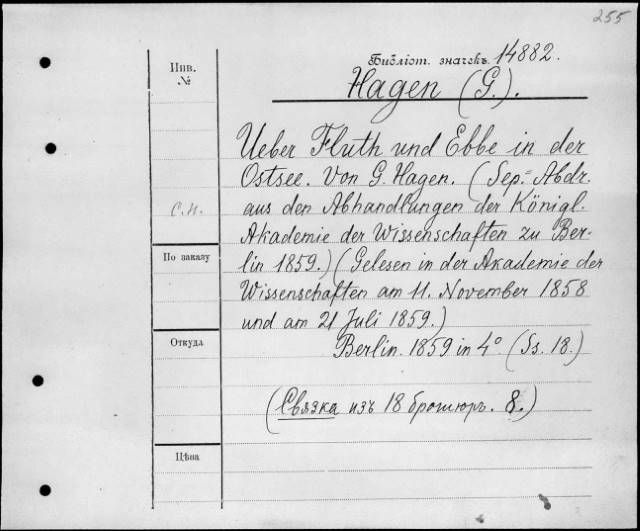 255
Библіот. значекъ 14882.
Инв.
№
Hagen (G.).
Ueber Fluth und Ebbe in der
Ostsee. Von G. Hagen. (Sep.=Abdr.
с.н.
aus den Abhandlungen der Königl.
Akademie der Wissenschaften zu Ber-
По заказу
lin 1859.) (Gelesen in der Akademie der
Wissenschaften am 11. November 1858
und am 21 Juli 1859.)
Откуда
Berlin. 1859 in 4° (Ss. 18.)
(Связка изъ 18 брошюръ. 8.)
Цѣна